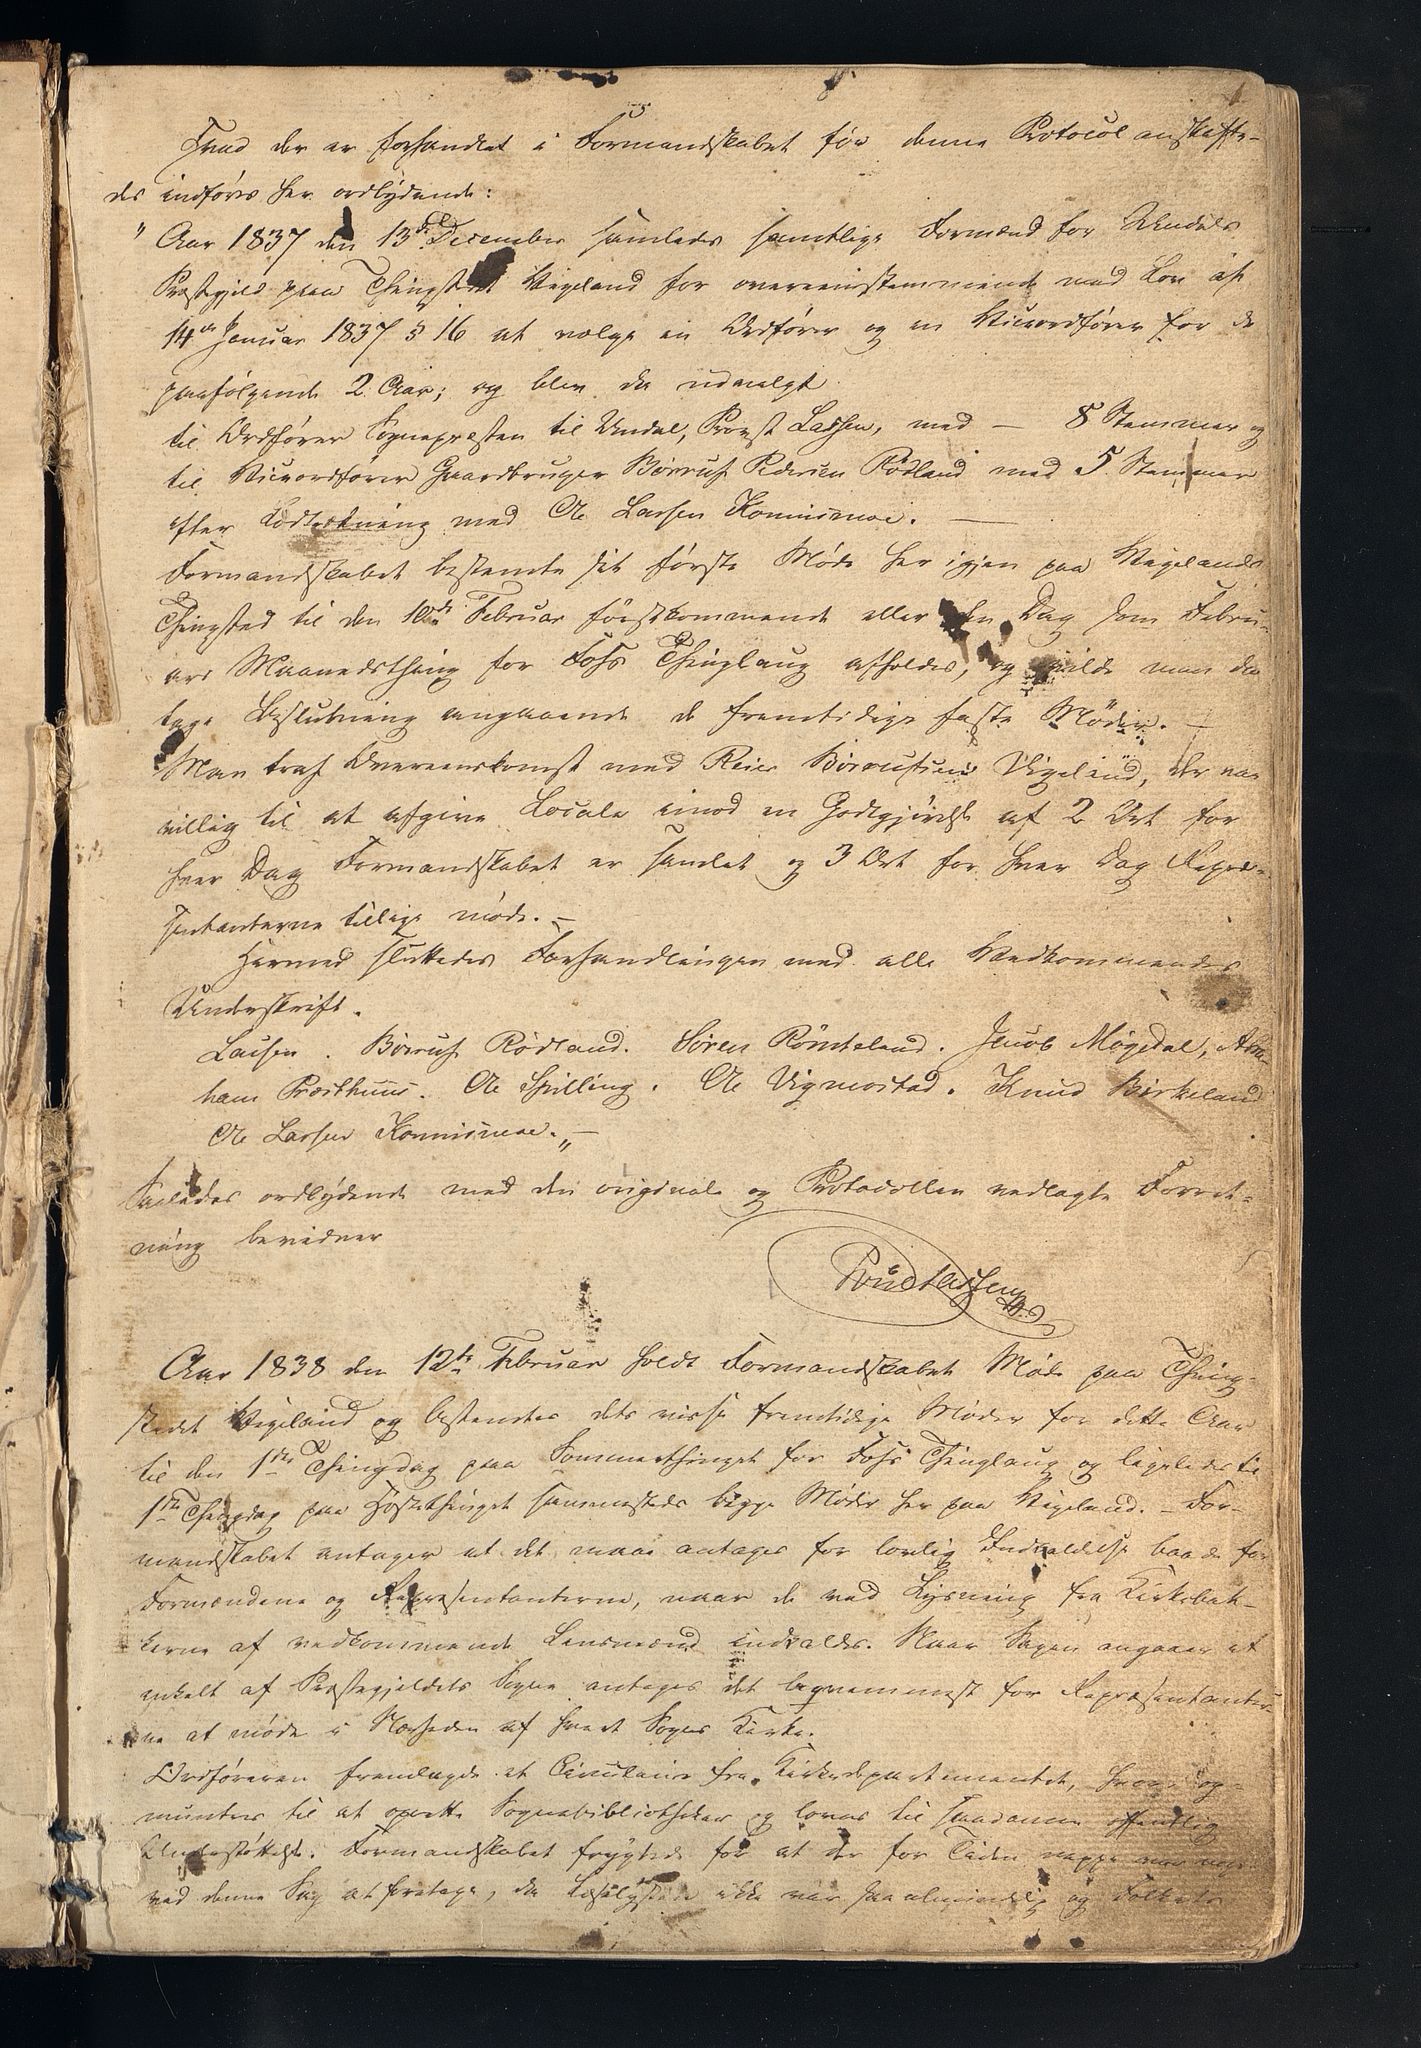 1
Hvad der er forhandlet i Formandskabet før denne Protocol anskaffe-
des indføres her ordlydende:
" Aar 1837 den 13de December samledes samtlige Formænd for Undals
Præstegjeld paa Thingstedet Vigeland for overeenstemmende med Lov af
14de Januar 1837 § 16 at vælge en Ordfører og en Viceordfører for de
paafølgende 2 Aar; og blev da udvalgt
til Ordfører Sognepræsten til Undal, Provst Lassen, med — 8 Stemmer og
til Viceordfører Gaardbruger Børruf Pedersen Rødland med 5 Stemmer
efter Lodtrækning med Ole Larsen Konnismoe. —
Formandskabet bestemte sit første Møde her igjen paa Vigelands
Thingsted til den 10de Februar førstkommende eller den Dag som Febru-
ars Maanedsthing for Fohs Thinglaug afholdes, og vilde man da
tage Beslutning angaaende de fremtidige faste Møder. —
Man traf Overeenskomst med Reier Børrufsen Vigeland, der var
villig til at afgive Locale imod en Godtgjørelse af 2 Ort for
hver Dag Formandskabet er samlet og 3 Ort for hver Dag Repræ-
sentanterne tillige møde. —
Hermed sluttedes Forhandlingen med alle Vedkommendes
Underskrift.
Lassen. Børruf Rødland. Søren Rømteland. Jacob Møgedal, Abra-
ham Præsthuus. Ole Spilling. Ole Vigmostad. Knud Birkeland
Ole Larsen Konnismoe." —
Saaledes ordlydende med den originale og Protocollen vedlagte Forret-
ning bevidner
Provst Lassen
Aar 1838 den 12te Februar holdt Formandskabet Møde paa Thing-
stedet Vigeland og bestemtes dets visse fremtidige Møder for dette Aar
til den 1ste Thingdag paa Sommerthinget for Fohs Thinglaug og ligeledes til
1ste Thingdag paa Høstethinget sammesteds begge Møder her paa Vigeland. — For-
mandskabet antager at det maae antages for lovlig Indkaldelse baade for
Formændene og Repræsentanterne, naar de ved Lysning fra Kirkebak-
kerne af vedkommende Lensmænd indkaldes. Naar Sagen angaaer et
enkelt af Præstegjeldets Sogne antages det beqvemmest for Repræsentanter-
ne at møde i Nærheden af hvert Sogns Kirke.
Ordføreren fremlagde et Circulaire fra Kirkedepartementet, hvori op-
muntres til at oprette Sognebibliotheker og loves til saadanne offentlig
Understøttelse. Formandskabet frygtede for at der for Tiden neppe var noget
ved denne Sag at foretage, da Læselysten ikke var saa almindelig og Folkets